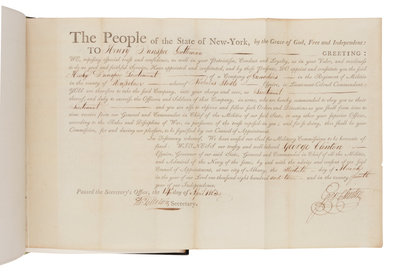 The People of the State of New-York, by the Grace of God, Free and Independent:
TO Henry Gentleman GREETING:
WE, reposing especial trust and confidence, as well in your Patriotism, Conduct and Loyalty, as in your Valor, and readiness
to do us good and faithful Service, Have appointed and constituted, and by these Presents, Do appoint and constitute you the said
Henry Lieutenant of a Company of in the Regiment of Militia
in the County of whereof Esquire, is Lieutenant-Colonel Commandant:
YOU are therefore to take the said Company, into your charge and care, as Lieutenant
thereof, and duly to exercise the Officers and Soldiers of that Company, in arms, who are hereby commanded to obey you as their
Lieutenant and you are also to observe and follow such Orders and Directions as you shall from time to
time receive from our General and Commander in Chief of the Militia of our said State, or any other your superior Officer,
according to the Rules and Discipline of War, in pursuance of the trust reposed in you; and for so doing, this shall be your
Commission, for and during our pleasure, to be signified by our Council of Appointment.
In Testimony whereof, We have caused our Seal for Military Commissions to be hereunto af-
fixed: WITNESS our trusty and well-beloved George Clinton
Esquire, Governor of our said State, General and Commander in Chief of all the Militia,
and Admiral of the Navy of the same, by and with the advice and consent of our said
Council of Appointment, at our City of Albany, the day of March
in the year of our Lord one thousand eight hundred and two and in the twenty
year of our Independence.
Passed the Secretary's Office, the day of April
Secretary.
Geo Clinton